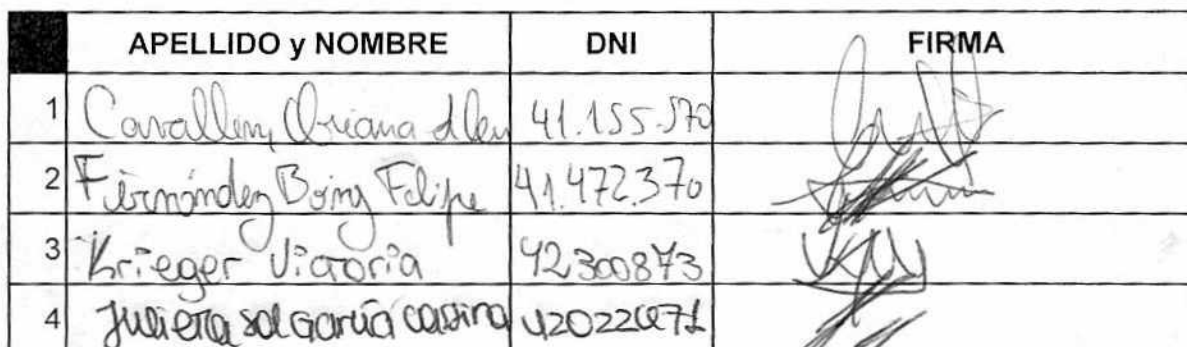 APELLIDO y NOMBRE DNI FIRMA
1 Cavallery Oriana 41.155.570
2 Fernández Boing Felipe 41.472.370
3 Krieger Victoria 42300873
4 Julieta sol García cassina